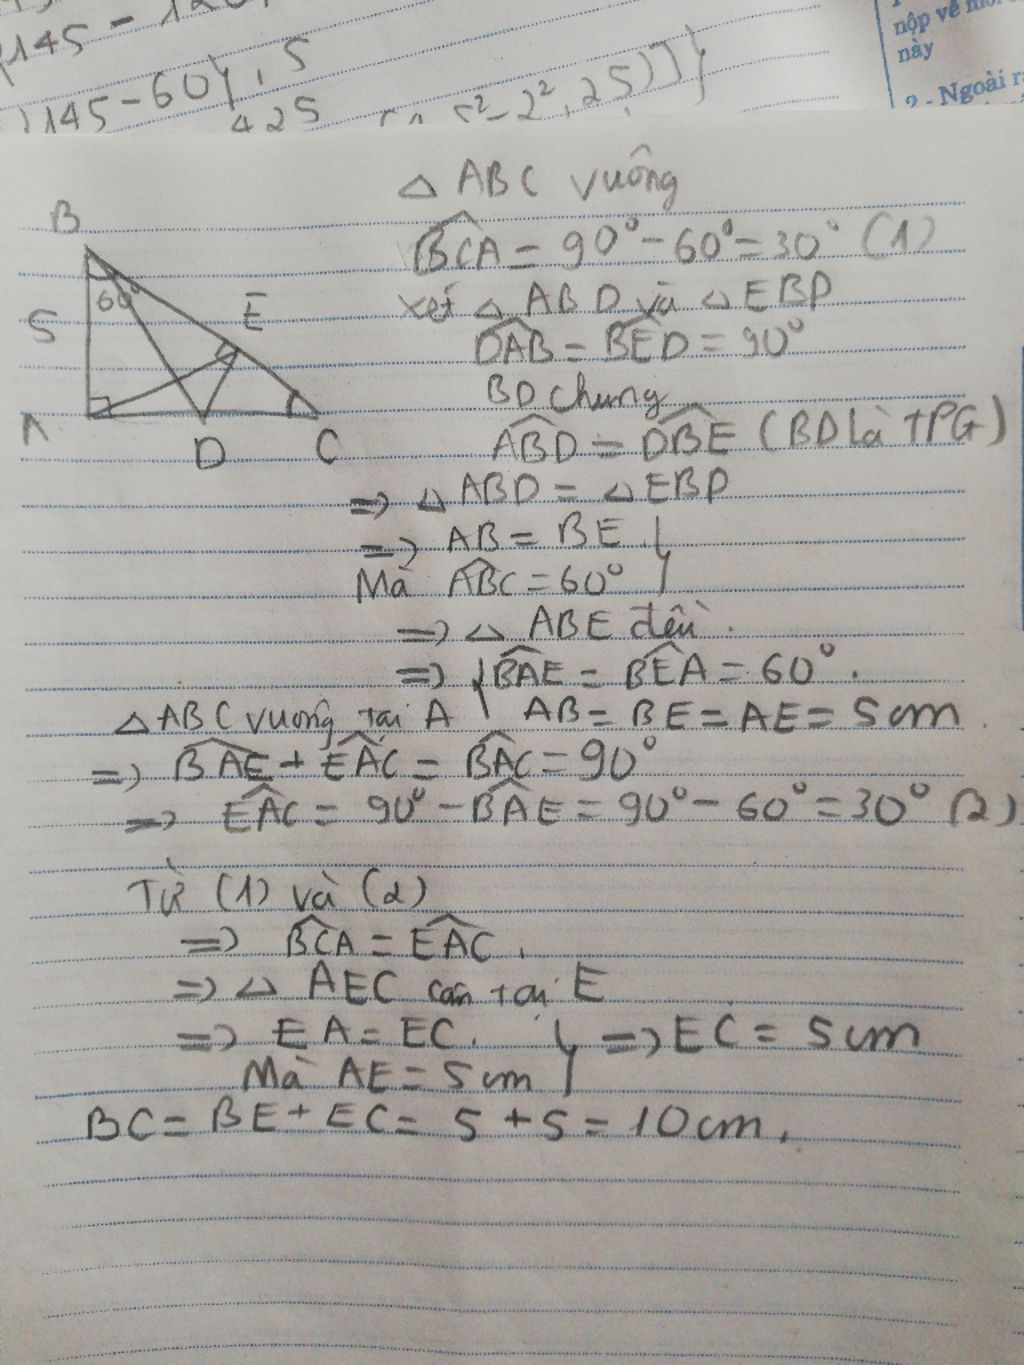 145 - 12
145 - 60}.5
425
5² - 2².25)]}
nộp về
này
2 - Ngoài ra
△ ABC vuông
B
60°
S
E
A
D
C
BCA = 90° - 60° = 30° (1)
xét △ ABD và △ EBD
DAB = BED = 90°
BD chung
ABD = DBE (BD là TPG)
=> △ ABD = △ EBD
=> AB = BE. }
Mà ABC = 60° }
=> △ ABE đều.
=> { BAE = BEA = 60°.
△ ABC vuông tại A { AB = BE = AE = 5cm.
=> BAE + EAC = BAC = 90°
=> EAC = 90° - BAE = 90° - 60° = 30° (2)
Từ (1) và (2)
=> BCA = EAC.
=> △ AEC cân tại E
=> EA = EC. } => EC = 5cm
Mà AE = 5cm }
BC = BE + EC = 5 + 5 = 10cm.